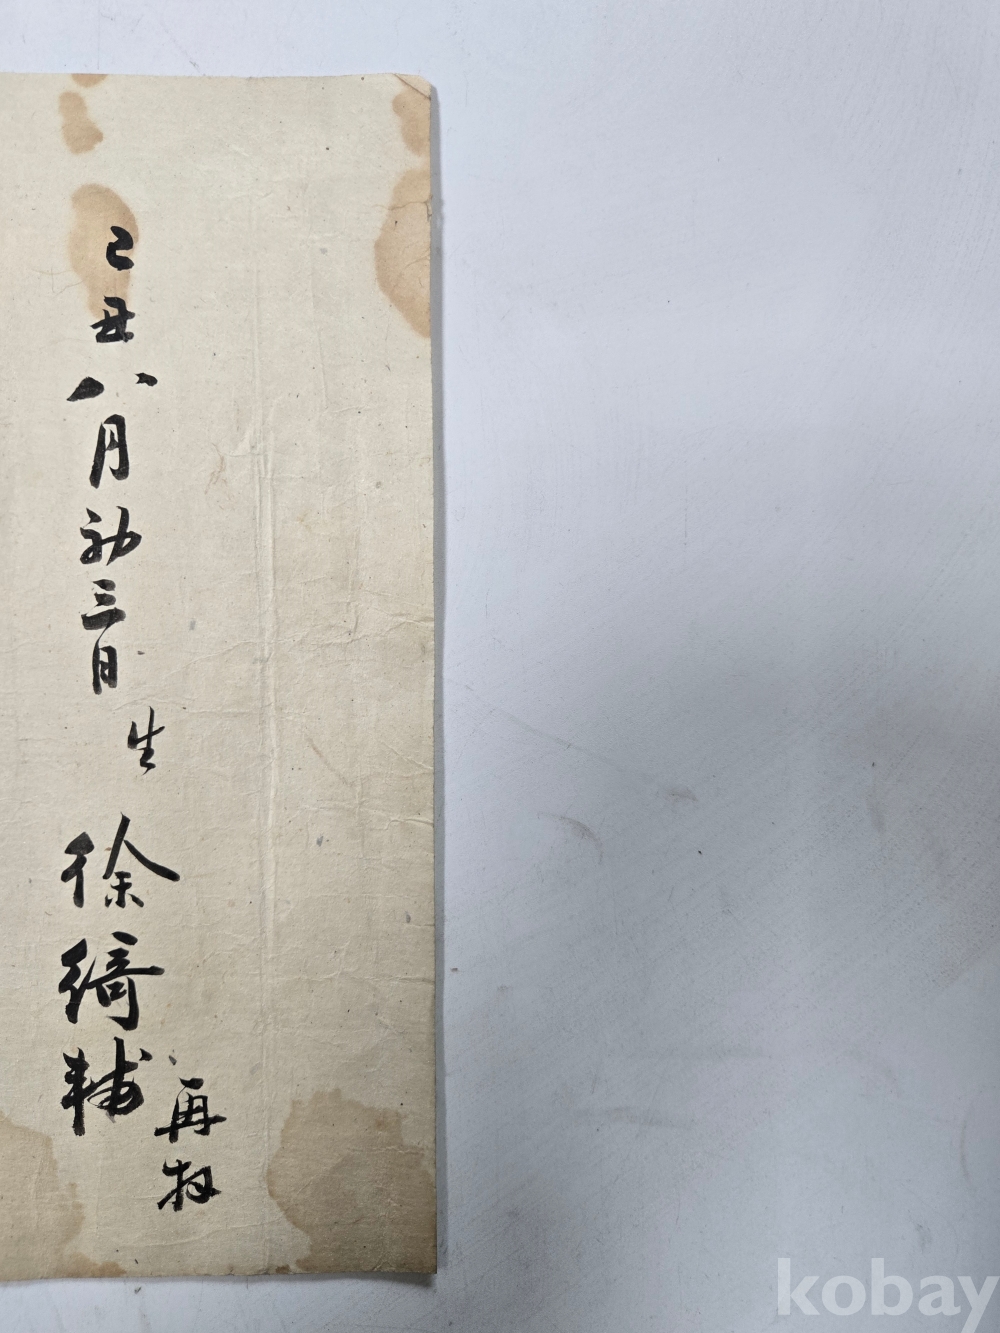 己丑八月初三日
生
徐綺輔
再拜
kobay